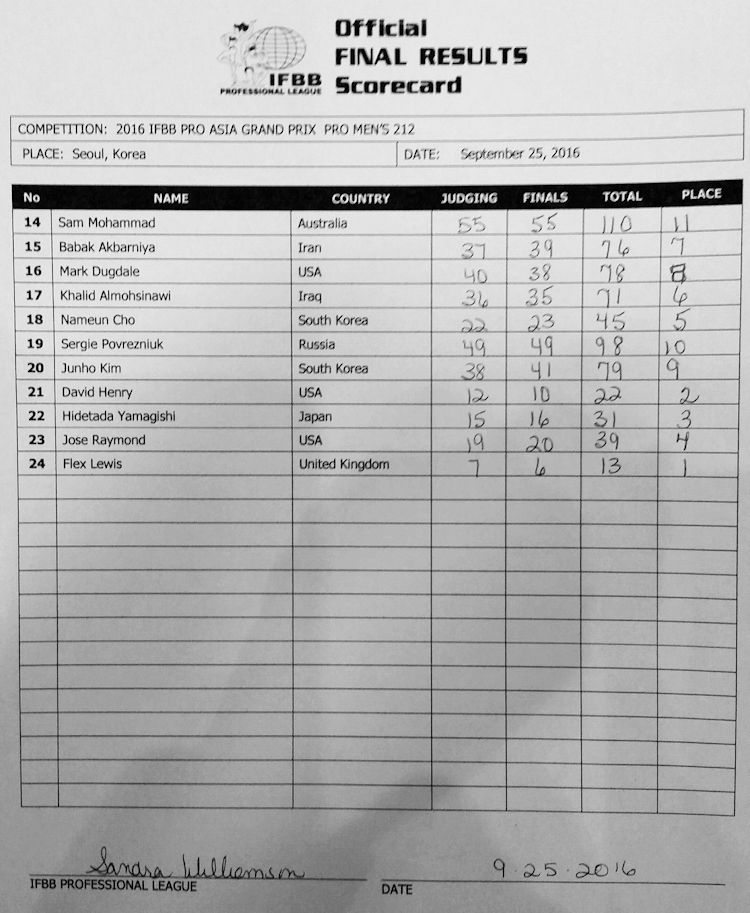 Official
FINAL RESULTS
Scorecard
IFBB
PROFESSIONAL LEAGUE
COMPETITION: 2016 IFBB PRO ASIA GRAND PRIX PRO MEN'S 212
PLACE: Seoul, Korea DATE: September 25, 2016
No NAME COUNTRY JUDGING FINALS TOTAL PLACE
14 Sam Mohammad Australia 55 55 110 11
15 Babak Akbarniya Iran 37 39 76 7
16 Mark Dugdale USA 40 38 78 8
17 Khalid Almohsinawi Iraq 36 35 71 6
18 Nameun Cho South Korea 22 23 45 5
19 Sergie Povrezniuk Russia 49 49 98 10
20 Junho Kim South Korea 38 41 79 9
21 David Henry USA 12 10 22 2
22 Hidetada Yamagishi Japan 15 16 31 3
23 Jose Raymond USA 19 20 39 4
24 Flex Lewis United Kingdom 7 6 13 1
Sandra Williamson 9.25.2016
IFBB PROFESSIONAL LEAGUE DATE